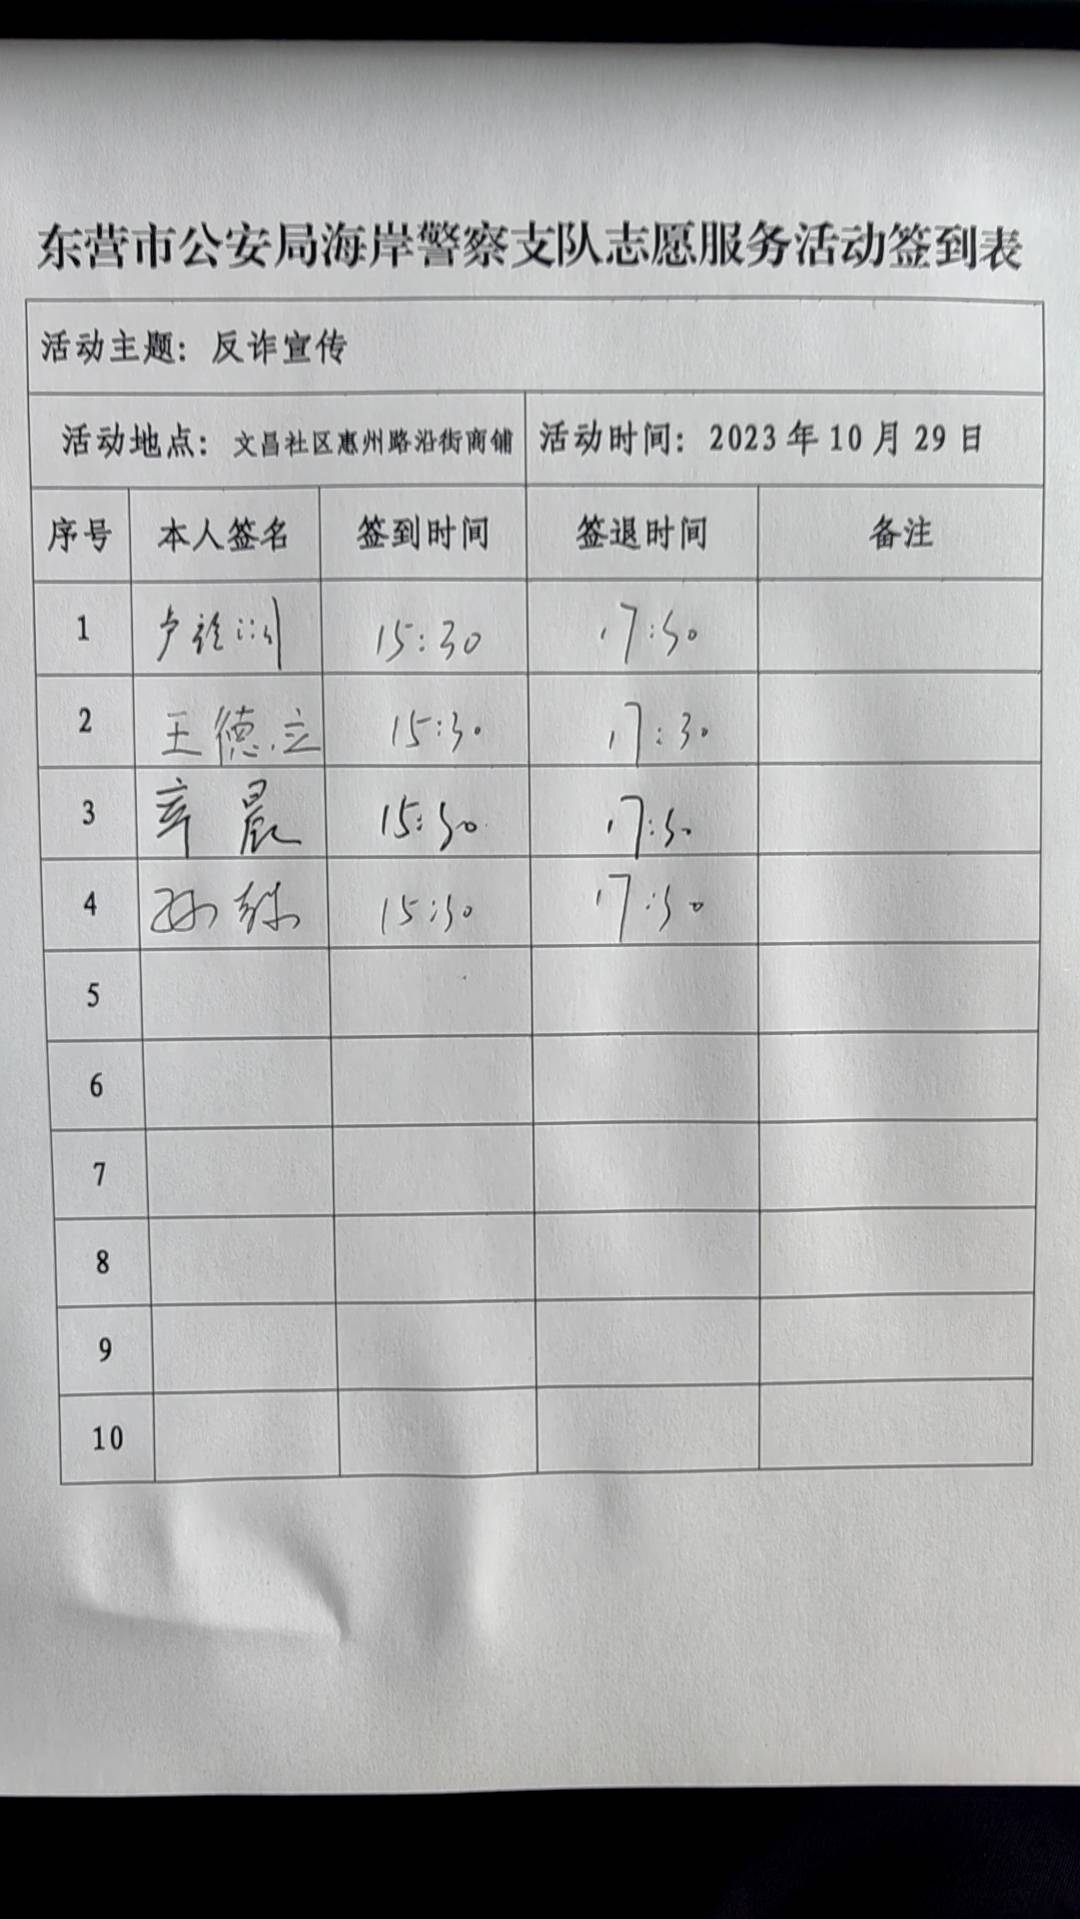 东营市公安局海岸警察支队志愿服务活动签到表
活动主题：反诈宣传
活动地点：文昌社区惠州路沿街商铺 活动时间：2023年10月29日
序号 本人签名 签到时间 签退时间 备注
1 卢 15:30 17:30
2 王德立 15:30 17:30
3 辛晨 15:30 17:30
4 孙 15:30 17:30
5
6
7
8
9
10